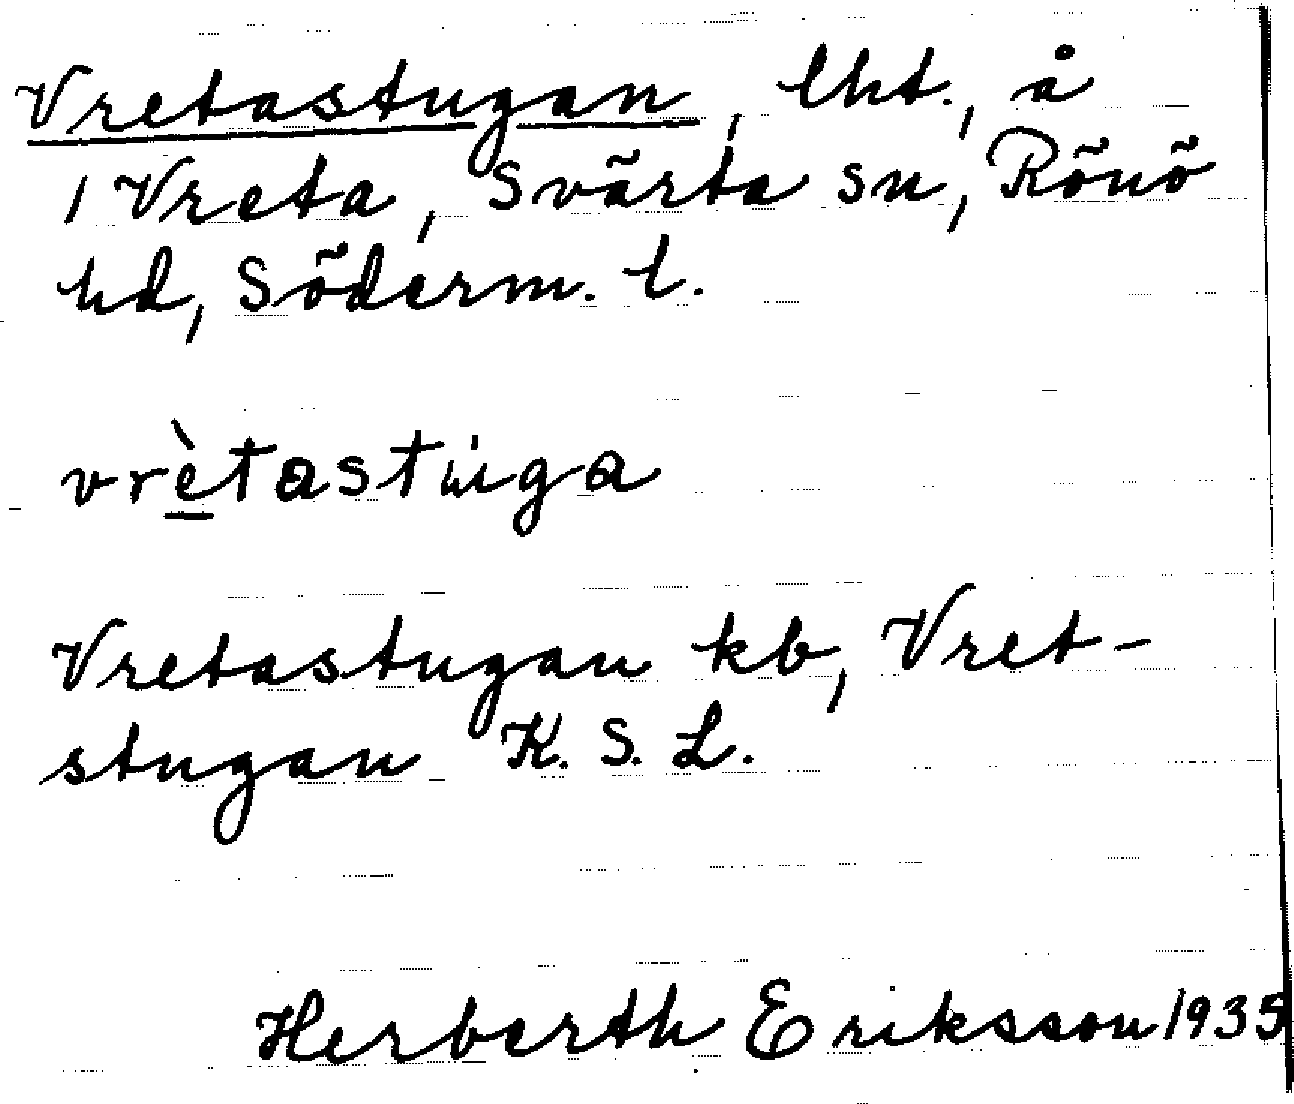 Vretastugan, lht., å
1 Vreta, Svärta sn, Rönö
hd, Söderm. l.
vrètastuga
Vretastugan kb, Vret-
stugan K. S. L.
Herberth Eriksson 1935